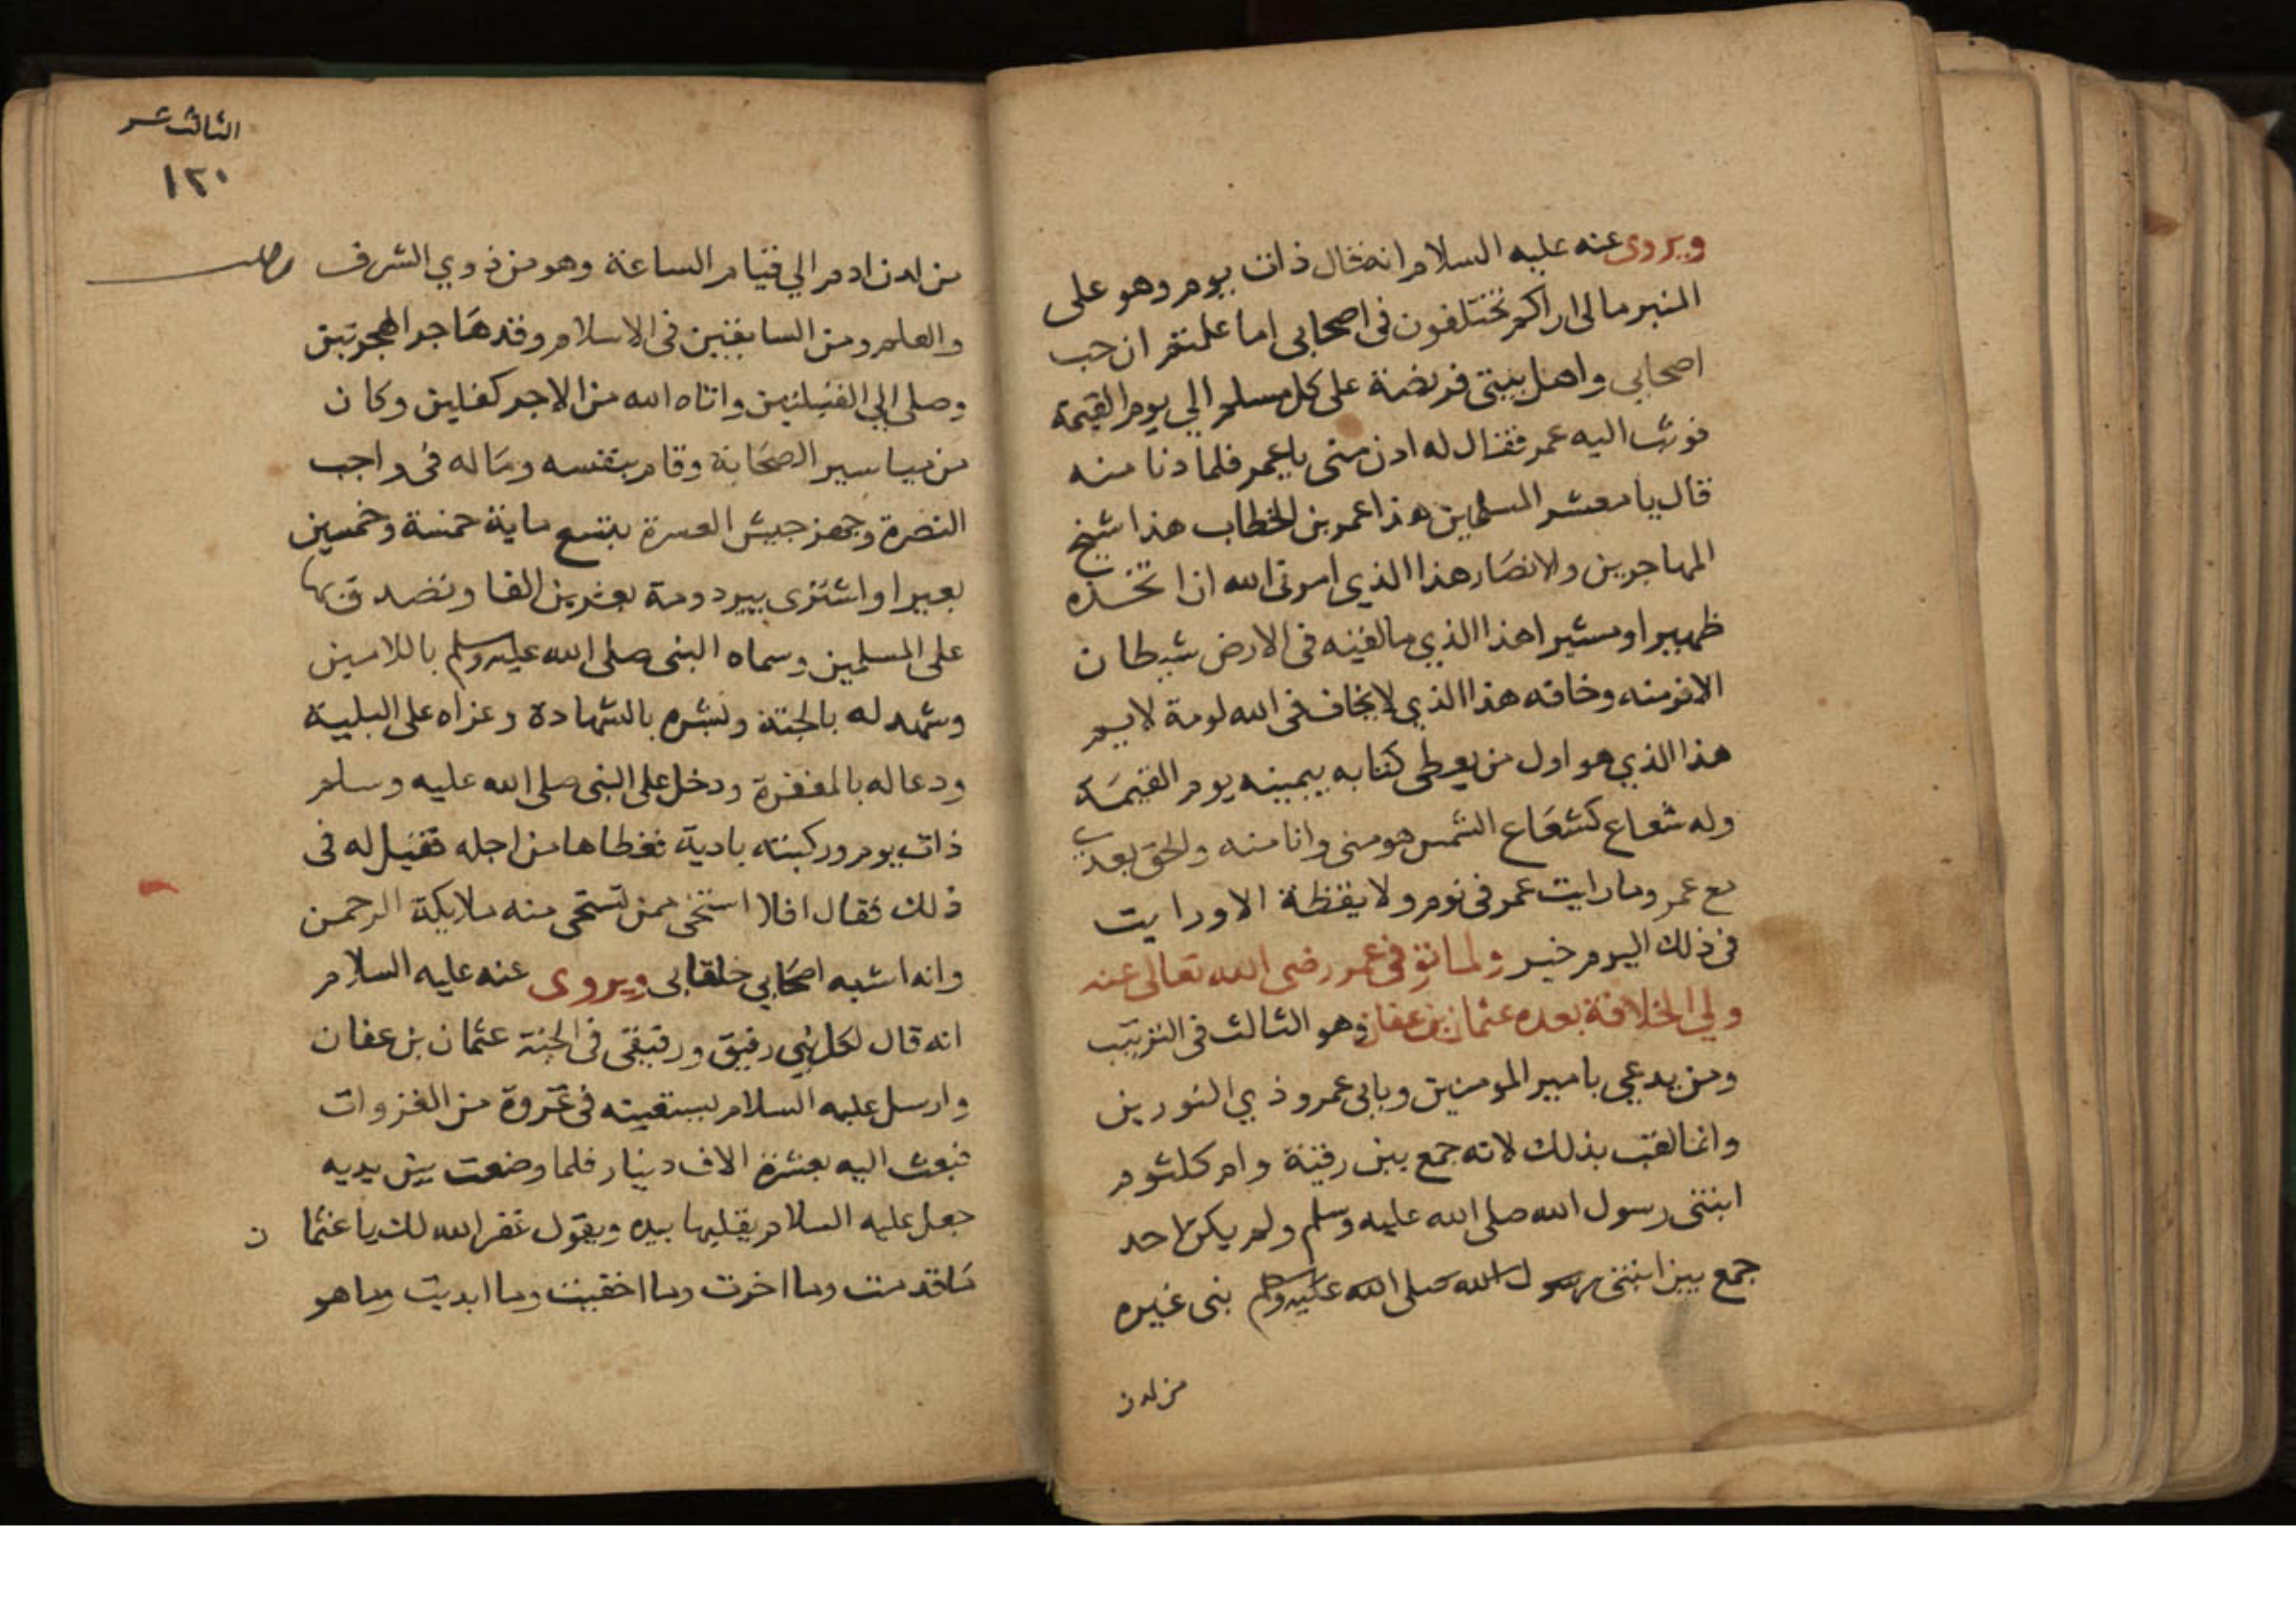 ويروى عنه عليه السلام انه قال ذات يوم وهو على
المنبر مالى اراكم تختلفون فى اصحابى اما علمتم ان حب
اصحابي واهل بيتى فريضة على كل مسلم الي يوم القيمة
فوثب اليه عمر فقال له ادن منى ياعمر فلما دنا منه
قال يا معشر المسلمين هذا عمر بن الخطاب هذا شيخ
المهاجرين ولانصار هذا الذي امرنى الله ان اتخذه
ظهيرا ومشيرا هذا الذي مالقيه فى الارض شيطان
الافر منه وخافه هذا الذي لايخاف فى الله لومة لايم
هذا الذي هو اول من يعطى كتابه بيمينه يوم القيمة
وله شعاع كشعاع الشمس هو منى وانا منه والحق بعدى
مع عمر وما رايت عمر فى نوم ولا يقظة الا ورايت
فى ذلك اليوم خير ولما توفى عمر رضى الله تعالى عنه
ولي الخلافة بعده عثمان بن عفان وهو الثالث فى الترتيب
ومن يدعي بامير المومنين وبابى عمرو ذي النورين
وانما لقب بذلك لانه جمع بين رقية وام كلثوم
ابنتى رسول الله صلى الله عليه وسلم ولم يكن احد
جمع بين ابنتى رسول الله صلى الله عليه وسلم بنى غيره
من لدن
الثالث عشر
١٢٠
من لدن ادم الي قيام الساعة وهو من ذوي الشرف
والعلم ومن السابقين فى الاسلام وقد هاجر الهجرتين
وصلى الي القبلتين واتاه الله من الاجر كفلين وكان
من مياسير الصحابة وقام بنفسه وماله فى واجب
النصرة وجهز جيش العسرة بتسع ماية خمسة وخمسين
بعيرا واشترى بير دومة بعشرين الفا وتصدق بها
على المسلمين وسماه النبى صلى الله عليه وسلم باللامين
وشهد له بالجنة وبشره بالشهادة وعزاه على البلية
ودعا له بالمغفرة ودخل على النبى صلى الله عليه وسلم
ذات يوم وركبته بادية فغطاها من اجله فقيل له فى
ذلك فقال افلا استحى ممن تستحى منه ملايكة الرحمن
وانه اشبه اصحابي خلقا بى ويروى عنه عليه السلام
انه قال لكل نبي رفيق ورفيقى فى الجنة عثمان بن عفان
وارسل عليه السلام يستعينه فى غزوة من الغزوات
فبعث اليه بعشرة الاف دينار فلما وضعت بين يديه
جعل عليه السلام يقلبها بيده ويقول غفر الله لك ياعثمان
ما قدمت وما اخرت وما اخفيت وما ابديت وما هو